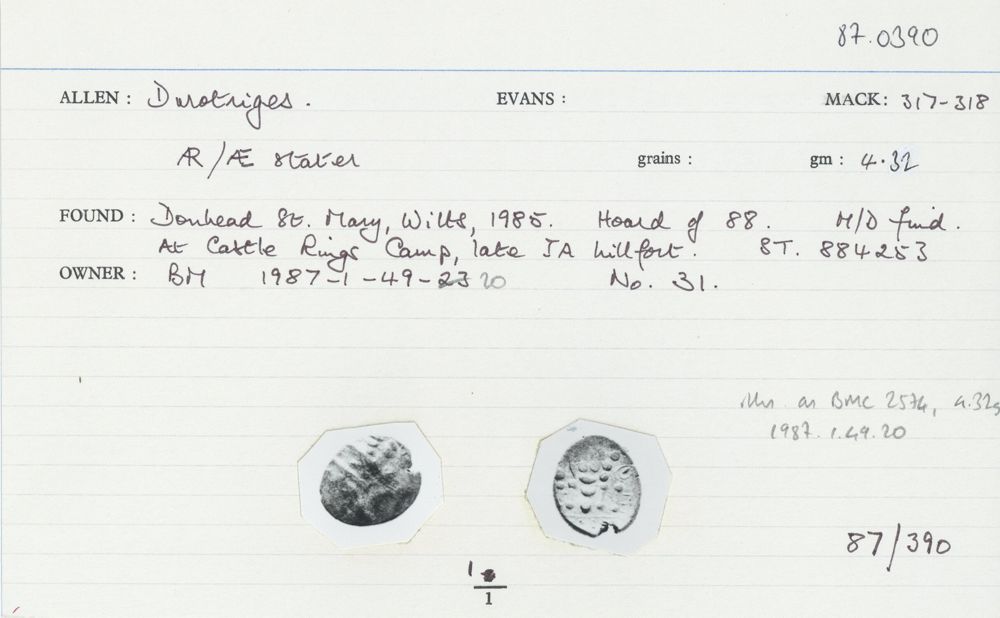 87.0390
ALLEN : Durotriges . EVANS : MACK: 317-318
ÆR/Æ stater grains : gm : 4.32
FOUND : Donhead St. Mary, Wilts, 1985. Hoard of 88. M/D find.
At Castle Rings Camp, late IA hillfort. ST. 884253
OWNER : BM 1987-1-49-23 20 No. 31.
illus as BMC 2574, 4.32g
1987.1.49.20
87/390
1
1